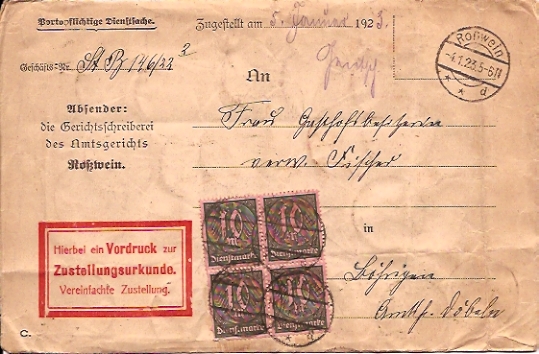 Portopflichtige Dienstsache.
Zugestellt am 5. Januar 1923.
Geschäfts-Nr. St B 146/22 2
Roßwein
-4.1.23.5-6N
* * d
An
Absender:
die Gerichtschreiberei
des Amtsgerichts
Roßwein.
Frau Gasthofsbesitzerin
verw. Fischer
in
Böhrigen
Amtsh. Döbeln
Hierbei ein Vordruck zur
Zustellungsurkunde.
Vereinfachte Zustellung.
10
m
Dienstmarke
10
m
Dienstmarke
10
m
Dienstmarke
10
m
Dienstmarke
C.